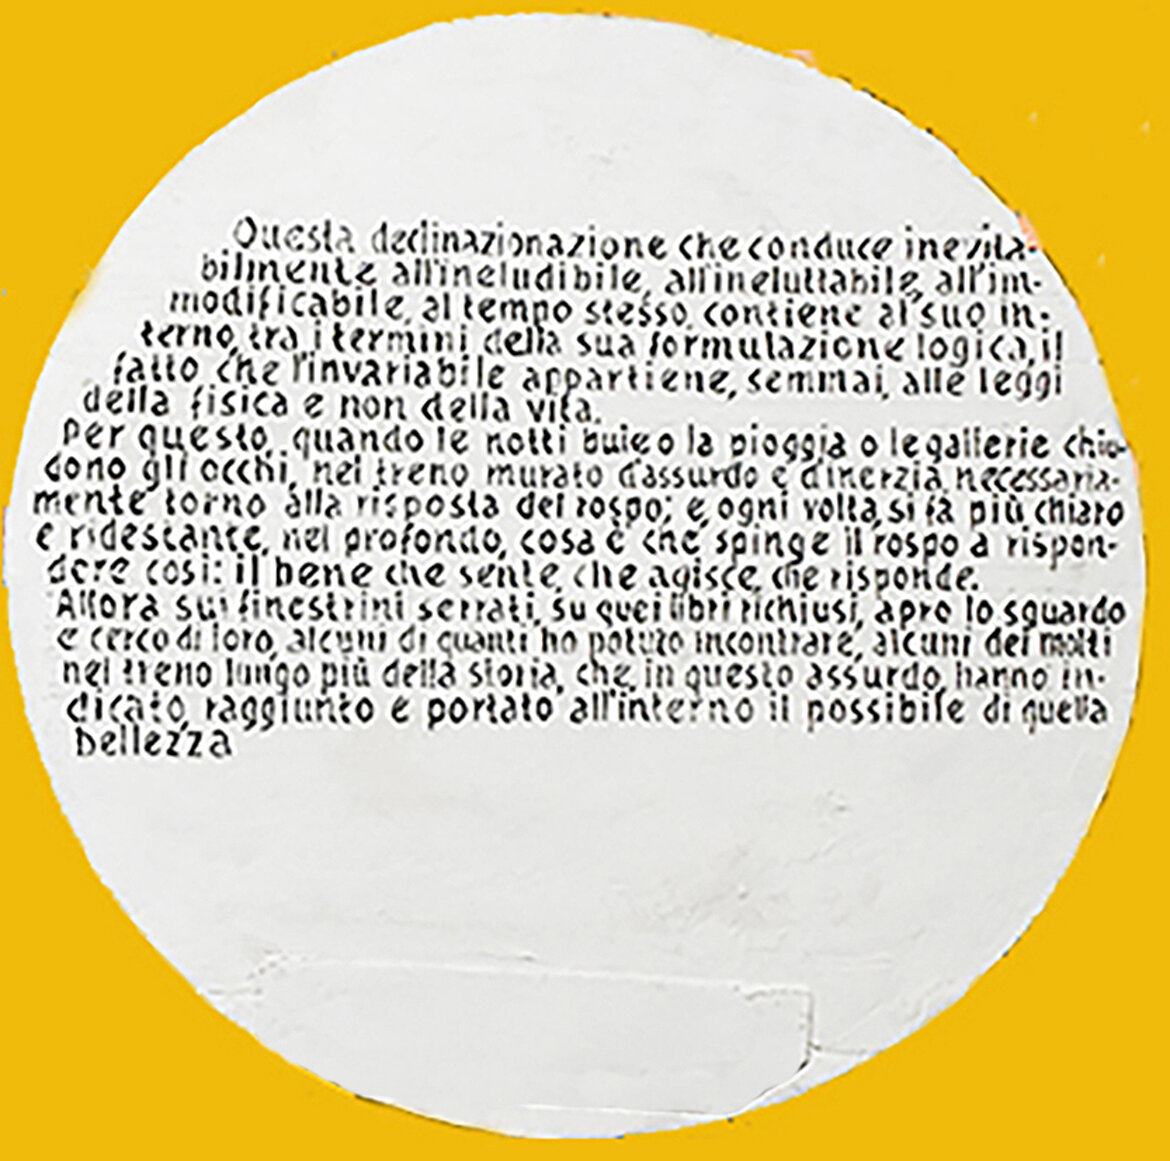 Questa declinazionazione che conduce inevita-
bilmente all'ineludibile, all'ineluttabile, all'im-
modificabile, al tempo stesso, contiene al suo in-
terno, tra i termini della sua formulazione logica, il
fatto che l'invariabile appartiene, semmai, alle leggi
della fisica e non della vita.
Per questo, quando le notti buie o la pioggia o le gallerie chiu-
dono gli occhi, nel treno murato d'assurdo e d'inerzia, necessaria-
mente torno alla risposta del rospo; e, ogni volta, si fa più chiaro
e ridestante, nel profondo, cosa è che spinge il rospo a rispon-
dere così: il bene che sente, che agisce, che risponde.
Allora sui finestrini serrati, su quei libri richiusi, apro lo sguardo
e cerco di loro, alcuni di quanti ho potuto incontrare, alcuni dei molti
nel treno lungo più della storia, che, in questo assurdo, hanno in-
dicato, raggiunto e portato all'interno il possibile di quella
bellezza